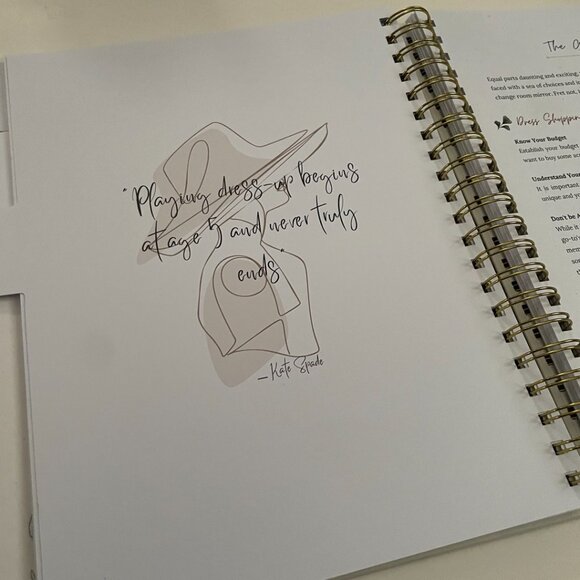 "Playing dress-up begins
at age 5 and never truly
ends"
—Kate Spade
The
Equal parts daunting and exciting,
faced with a sea of choices and
change room mirror. Fret not,
Dress Shopping
Know Your Budget
Establish your budget
want to buy some
Understand Your
It is important
unique and
Don't be
While it
go-to